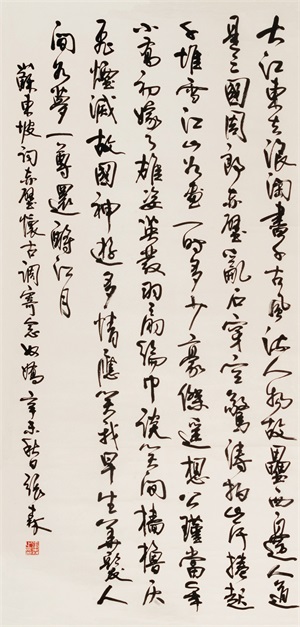 大江東去浪淘盡千古風流人物故壘西邊人道
是三國周郎赤壁亂石穿空驚濤拍岸捲起
千堆雪江山如畫一時多少豪傑遙想公瑾當年
小喬初嫁了雄姿英發羽扇綸巾談笑間檣櫓灰
飛煙滅故國神遊多情應笑我早生華髮人
間如夢一尊還酹江月
蘇東坡詞赤壁懷古調寄念奴嬌辛未秋日張森